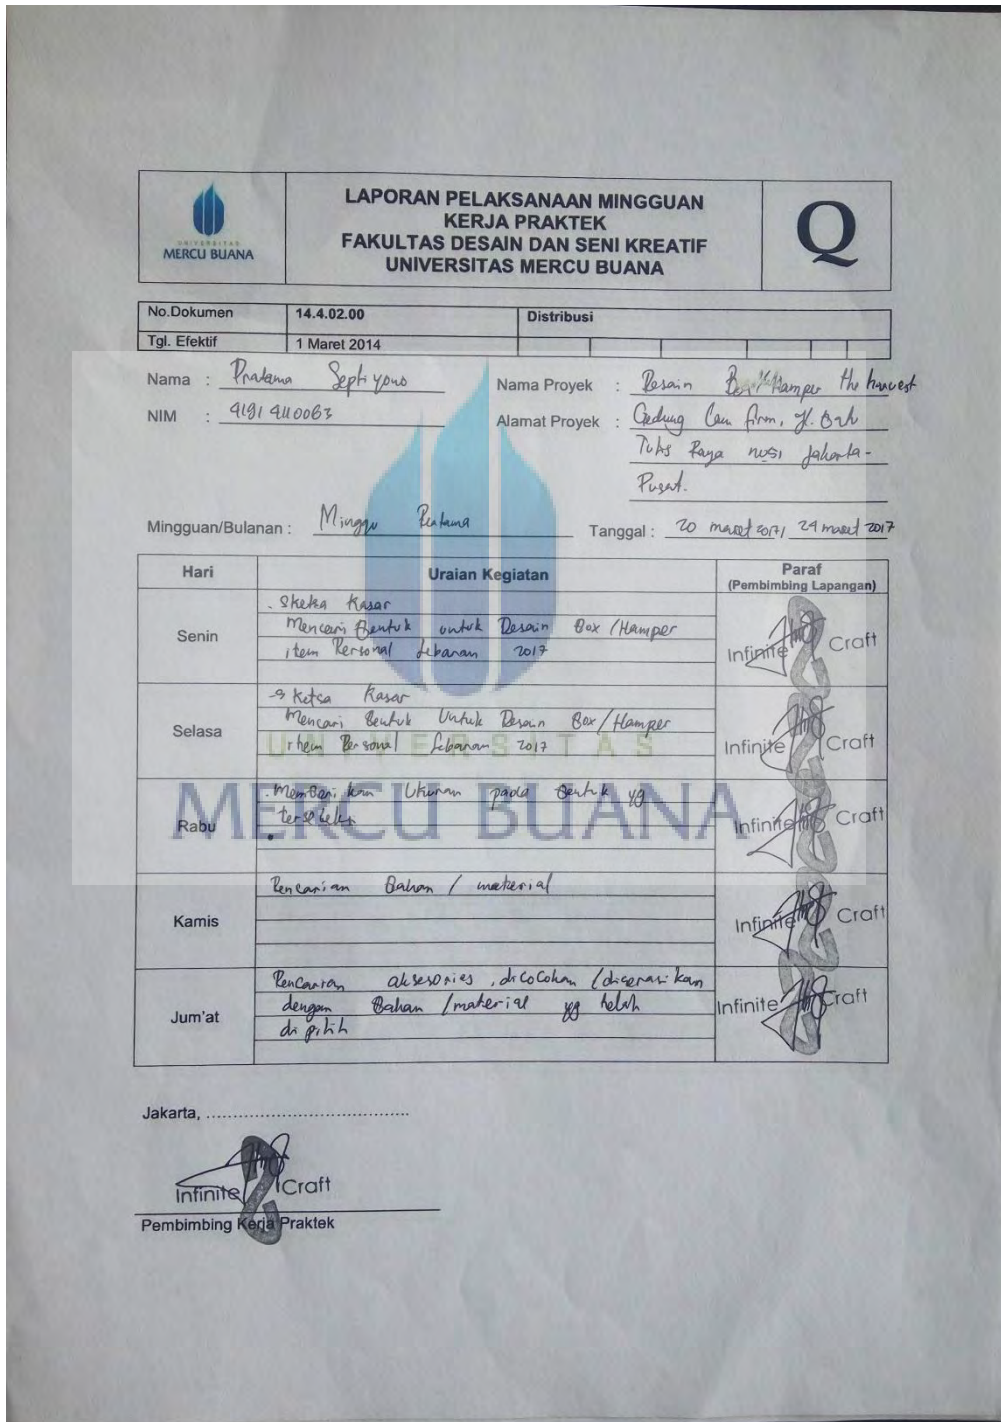 UNIVERSITAS
MERCU BUANA
LAPORAN PELAKSANAAN MINGGUAN
KERJA PRAKTEK
FAKULTAS DESAIN DAN SENI KREATIF
UNIVERSITAS MERCU BUANA
Q
No.Dokumen 14.4.02.00 Distribusi
Tgl. Efektif 1 Maret 2014
Nama : Pratama Septiyono
NIM : 41914110063
Nama Proyek : Desain Box/Hamper the harvest
Alamat Proyek : Gedung Law firm, Jl.
Raya Jakarta-
Pusat.
Mingguan/Bulanan : Minggu Pertama
Tanggal : 20 maret 2017/ 24 maret 2017
Hari Uraian Kegiatan Paraf
(Pembimbing Lapangan)
Senin
. Sketsa Kasar
Mencari Bentuk untuk Desain Box/Hamper
item Personal Lebaran 2017
Infinite Craft
Selasa
- Sketsa Kasar
Mencari Bentuk Untuk Desain Box/Hamper
item Personal Lebaran 2017
Infinite Craft
UNIVERSITAS
MERCU BUANA
Rabu
. Memberikan Ukuran pada Bentuk yg
tersebut
Infinite Craft
Kamis
Pencarian Bahan / material
Infinite Craft
Jum'at
Pencarian aksesories, dicocokan /diserasikan
dengan Bahan /material yg telah
di pilih
Infinite Craft
Jakarta, ....................................
Infinite Craft
Pembimbing Kerja Praktek